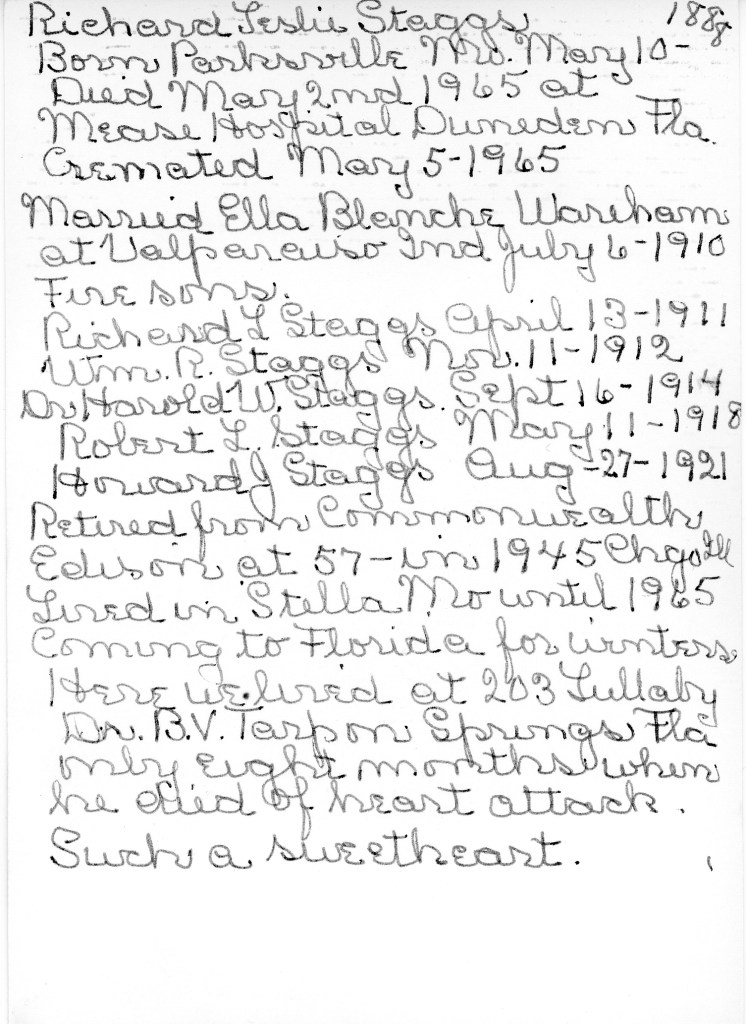 Richard Leslie Staggs 1888
Born Parksville Mo. May 10-
Died May 2nd 1965 at
Mease Hospital Duneden Fla.
Cremated May 5-1965
Married Ella Blanche Wareham
at Valparaiso Ind July 6-1910
Five sons.
Richard L Staggs April 13-1911
Wm. R. Staggs Nov. 11-1912
Dr. Harold W. Staggs. Sept 16-1914
Robert L. Staggs May 11-1918
Howard J Staggs Aug-27-1921
Retired from Commonwealth
Edison at 57-in 1945 Chgo Ill
Lived in Stella Mo until 1965
Coming to Florida for winters.
Here we lived at 203 Lullaby
Dr. B.V. Tarpon Springs Fla
only eight months when
he died of heart attack.
Such a sweetheart.